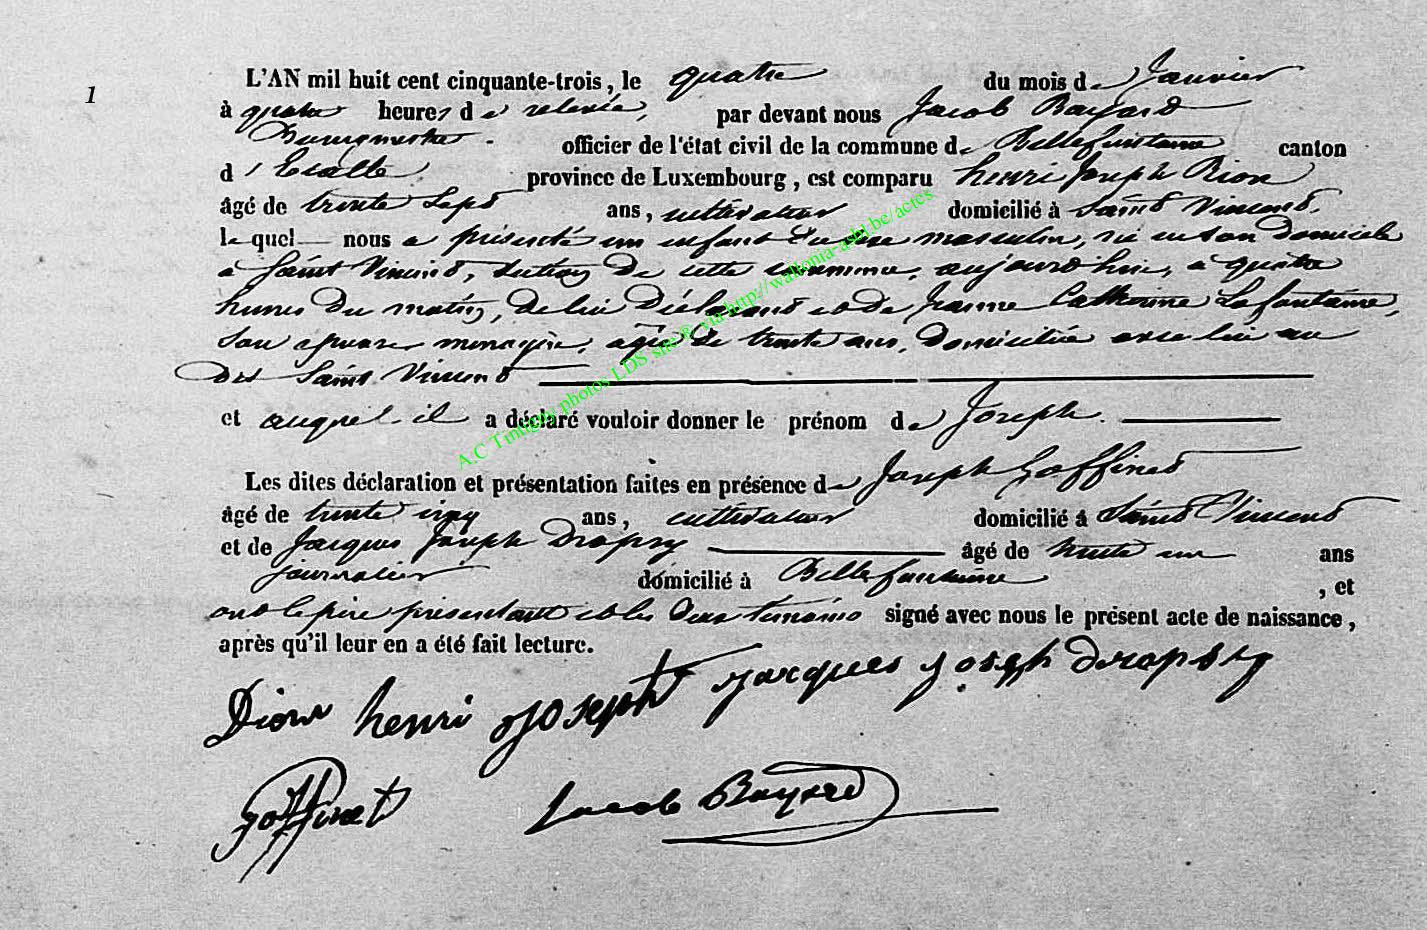 1
L'AN mil huit cent cinquante-trois, le quatre du mois de Janvier
à quatre heures de relevée, par devant nous Jacob Bayard
Bourgmestre officier de l'état civil de la commune de Bellefontaine canton
d'Etalle province de Luxembourg, est comparu henri Joseph Dion
âgé de trente sept ans, cultivateur domicilié à Saint Vincent,
lequel nous a présenté un enfant du sexe masculin, né en son domicile
à Saint Vincent, section de cette commune, aujourd'hui, à quatre
heures du matin, de lui déclarant et de Jeanne Catherine Lafontaine,
son épouse, ménagère, âgée de trente ans, domiciliée avec lui au
dit Saint Vincent
et auquel il a déclaré vouloir donner le prénom de Joseph.
Les dites déclaration et présentation faites en présence de Joseph Goffinet
âgé de trente cinq ans, cultivateur domicilié à Saint Vincent
et de Jacques Joseph Dropsy âgé de trente un ans
journalier domicilié à Bellefontaine, et
ont le père présentant et les deux témoins signé avec nous le présent acte de naissance,
après qu'il leur en a été fait lecture.
Dion henri Joseph Jacques Joseph Dropsy
Goffinet Jacob Bayard
A.C Tintigny photos LDS site ® via http://wallonia-asbl.be/actes